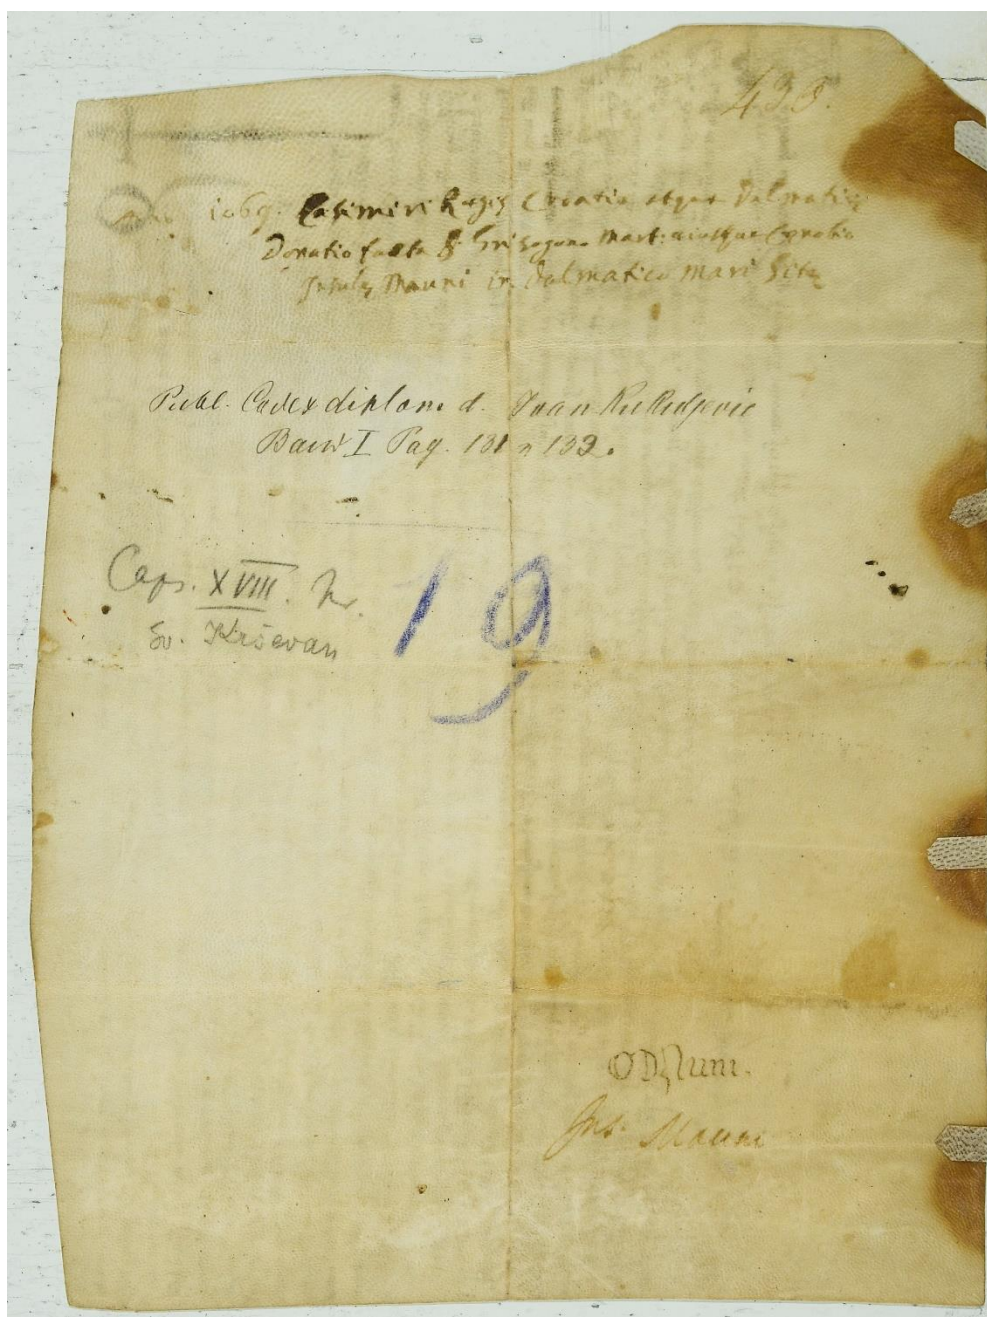 438.
1069. Casimiri Regis Croatiae atque Dalmatiae
Donatio facta S. Grisogono Mart.
Insulę Mauni in Dalmatico mari sitę
Publ. Codex diplom. d. Ivan Kukuljevic
I Pag. 131 132.
Caps. XVIII. Nr. 19
Sv. Krševan
Ins. Mauni